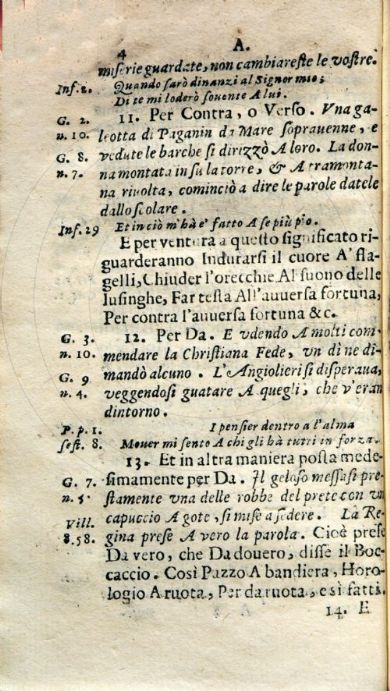 4 A.
miserie guardate, non cambiareste le vostre.
Inf. 2. Quando sarò dinanzi al Signor mio;
Di te mi loderò souente A lui.
G. 2. 11. Per Contra, o Verso. Vna ga-
n. 10. leotta di Paganin da Mare soprauenne, e
G. 8. vedute le barche si dirizzò A loro. La don-
n. 7. na montata in su la torre, & A tramonta-
na riuolta, cominciò a dire le parole datele
dallo scolare.
Inf. 29 Et in ciò m'hà e' fatto A se più pio.
E per ventura a questo significato ri-
guarderanno Indurarsi il cuore A' fla-
gelli, Chiuder l'orecchie Al suono delle
lusinghe, Far testa All'auuersa fortuna,
Per contra l'auuersa fortuna &c.
G. 3. 12. Per Da. E vdendo A molti com-
n. 10. mendare la Christiana Fede, vn dì ne di-
G. 9 mandò alcuno. L'Angiolieri si disperaua,
n. 4. veggendosi guatare A quegli, che v'eran
dintorno.
P. p. 1. I pensier dentro a l'alma
sest. 8. Mouer mi sento A chi gli hà tutti in forza.
13. Et in altra maniera posta mede-
G. 7. simamente per Da. Il geloso messasi pre-
n. 5. stamente vna delle robbe del prete con vn
capuccio A gote, si mise a sedere. La Re-
Vill. gina prese A vero la parola. Cioè prese
8.58. Da vero, che Dadouero, disse il Boc-
caccio. Così Pazzo A bandiera, Horo-
logio A ruota, Per da ruota, e sì fatti.
14. E